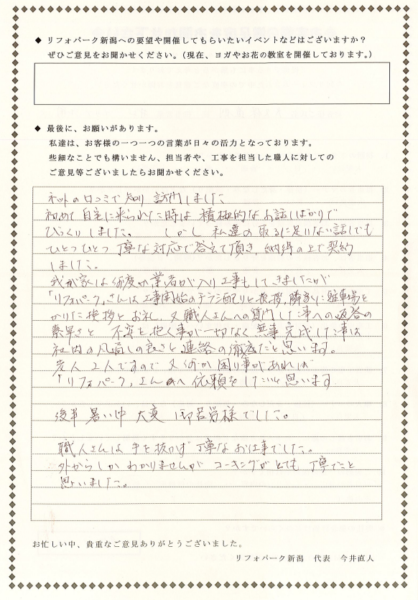 ◆ リフォパーク新潟への要望や開催してもらいたいイベントなどはございますか?
ぜひご意見をお聞かせください。(現在、ヨガやお花の教室を開催しております。)
◆ 最後に、お願いがあります。
私達は、お客様の一つ一つの言葉が日々の活力となっております。
些細なことでも構いません、担当者や、工事を担当した職人に対しての
ご意見等ございましたらお聞かせください。
ネットの口コミで知り 訪問しました
初めて自宅に来られた時は 積極的なお話しばかりで
びっくりしました。 しかし 私達の取るに足りない話しでも
ひとつひとつ 丁寧な対応で答えて頂き、納得の上で契約
しました。
我が家は何度か業者が入り工事もしてきましたが
「リフォパーク」さんは工事開始のチラシ配りと挨拶、隣りに駐車場を
かりた挨拶とお礼、又 職人さんへの質問した事への返答の
素早さと 不安を抱く事が一切なく無事完成した事は
社内の風通しの良さと連絡の徹底だと思います。
老人2人ですので 又 何か困り事があれば
「リフォパーク」さんへ依頼をしたいと思います
後半 暑い中 大変 ご苦労様でした。
職人さんは 手を抜かず 丁寧なお仕事でした。
外からしかわかりませんが コーキングがとても丁寧だと
思いました。
お忙しい中、貴重なご意見ありがとうございました。
リフォパーク新潟 代表 今井直人